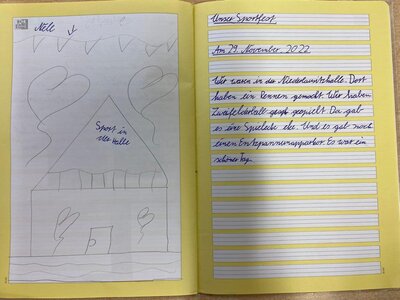 Nele
Sport in
der Halle
Unser Sportfest
Am 29. November 2022
Wir waren in der Niederlausitzhalle. Dort
haben ein Rennen gemacht. Wir haben
Zweifelderball gespielt. Da gab
es eine Spielecke. Und es gab noch
einen Entspannungsparkor. Es war ein
schöner Tag.